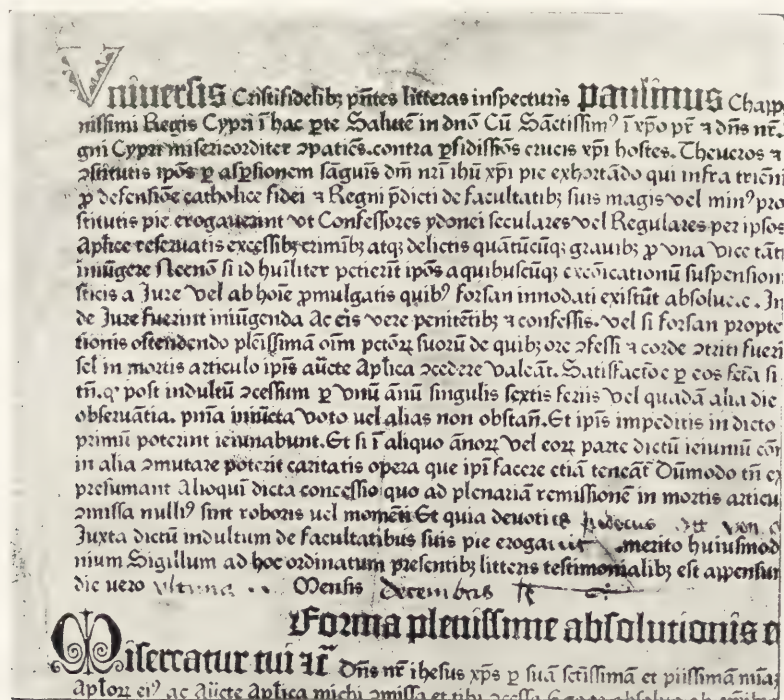 Vniuersis Cristifidelibꝫ pñtes litteras inspecturis Paulinus Chapp
nissimi Regis Cypri ĩ hac ꝑte Salutẽ in dnõ Cũ Sãctissimꝰ ĩ xp̃o pr̃ ⁊ dñs nr̃.
gni Cypri misericorditer ꝯpatiẽs.contra ꝑfidissĩos crucis xp̃i hostes.Theucros ⁊
ꝯstitutis ip̃os ꝑ aspsionem sãguis dñi nr̃i ihũ xp̃i pie exhortãdo qui infra trienĩ
ꝓ defensiõe catholice fidei ⁊ Regni p̃dicti de facultatibꝫ suis magis vel minꝰ pro
stitutis pie erogauerint vt Confessores ydonei seculares vel Regulares per ipsos
Aplice reseruatis excessibꝫ criminibꝫ atqꝫ delictis quãtũcũqꝫ grauibꝫ ꝓ vna vice tãt
iniũgere Necnõ si id huĩliter petierĩt ip̃os a quibuscũqꝫ excõicationũ suspension
sticis a Jure vel ab hoĩe ꝓmulgatis quibꝰ forsan innodati existũt absoluere. In
de Jure fuerint iniũgenda Ac eis vere penitẽtibꝫ ⁊ confessis.vel si forsan propte
tionis ostendendo pleĩssimã oĩm pctõꝝ suorũ de quibꝫ ore ꝯfessi ⁊ corde ꝯtriti fueri
sel in mortis articulo ip̃is aũcte Aplica ꝯcedere valeãt. Satisfactõe ꝑ eos fcta si
tñ.qꝰ post indultũ ꝯcessum ꝑ vnũ ãnũ singulis sextis feriis vel quadã alia die
obseruãtia. pnĩa iniũcta voto uel alias non obstañ.Et ip̃is impeditis in dicto
primũ poterint ieiunabunt.Et si ĩ aliquo ãnoꝝ vel eoꝝ parte dictũ ieiuniũ cõ
in alia ꝯmutare poterit caritatis opera que ip̃i facere etiã teneãt Dũmodo tñ ex
presumant Alioquĩ dicta concessio quo ad plenariã remissionẽ in mortis articu
ꝯmissa nulliꝰ sint roboris uel momẽti Et quia deuoti
Juxta dictũ indultum de facultatibus suis pie erogauit merito huiusmod
nium Sigillum ad hoc ordinatum presentibꝫ litteris testimonialibꝫ est appensum
die uero vltima Mensis decembris
Forma plenissime absolutionis e
Misereatur tui ⁊c̃ Dñs nr̃ ihesus xp̃s ꝑ suã sctĩssimã et piissimã mĩa
Aploꝝ eiꝰ ac Aũcte Aplica michi ꝯmissa et tibi ꝯcessa